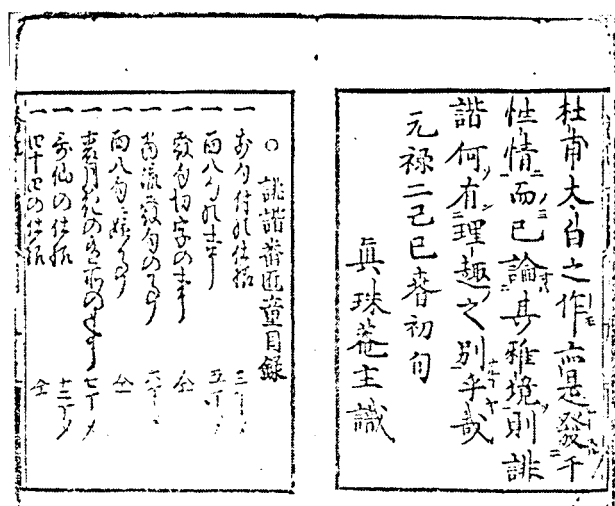 杜甫太白之作亦是發于
性情而已論其雅境則誹
諧何有理趣之別乎哉
元禄二己巳春初旬
真珠菴主識
○誹諧番匠童目録
一 前句付の仕様 三丁メ
一 面八句の事 五丁メ
一 發句切字の事 仝
一 當流發句の事 六丁メ
一 面八句 仝
一 七丁メ
一 哥仙の仕様 十二丁メ
一 四十四の仕様 仝